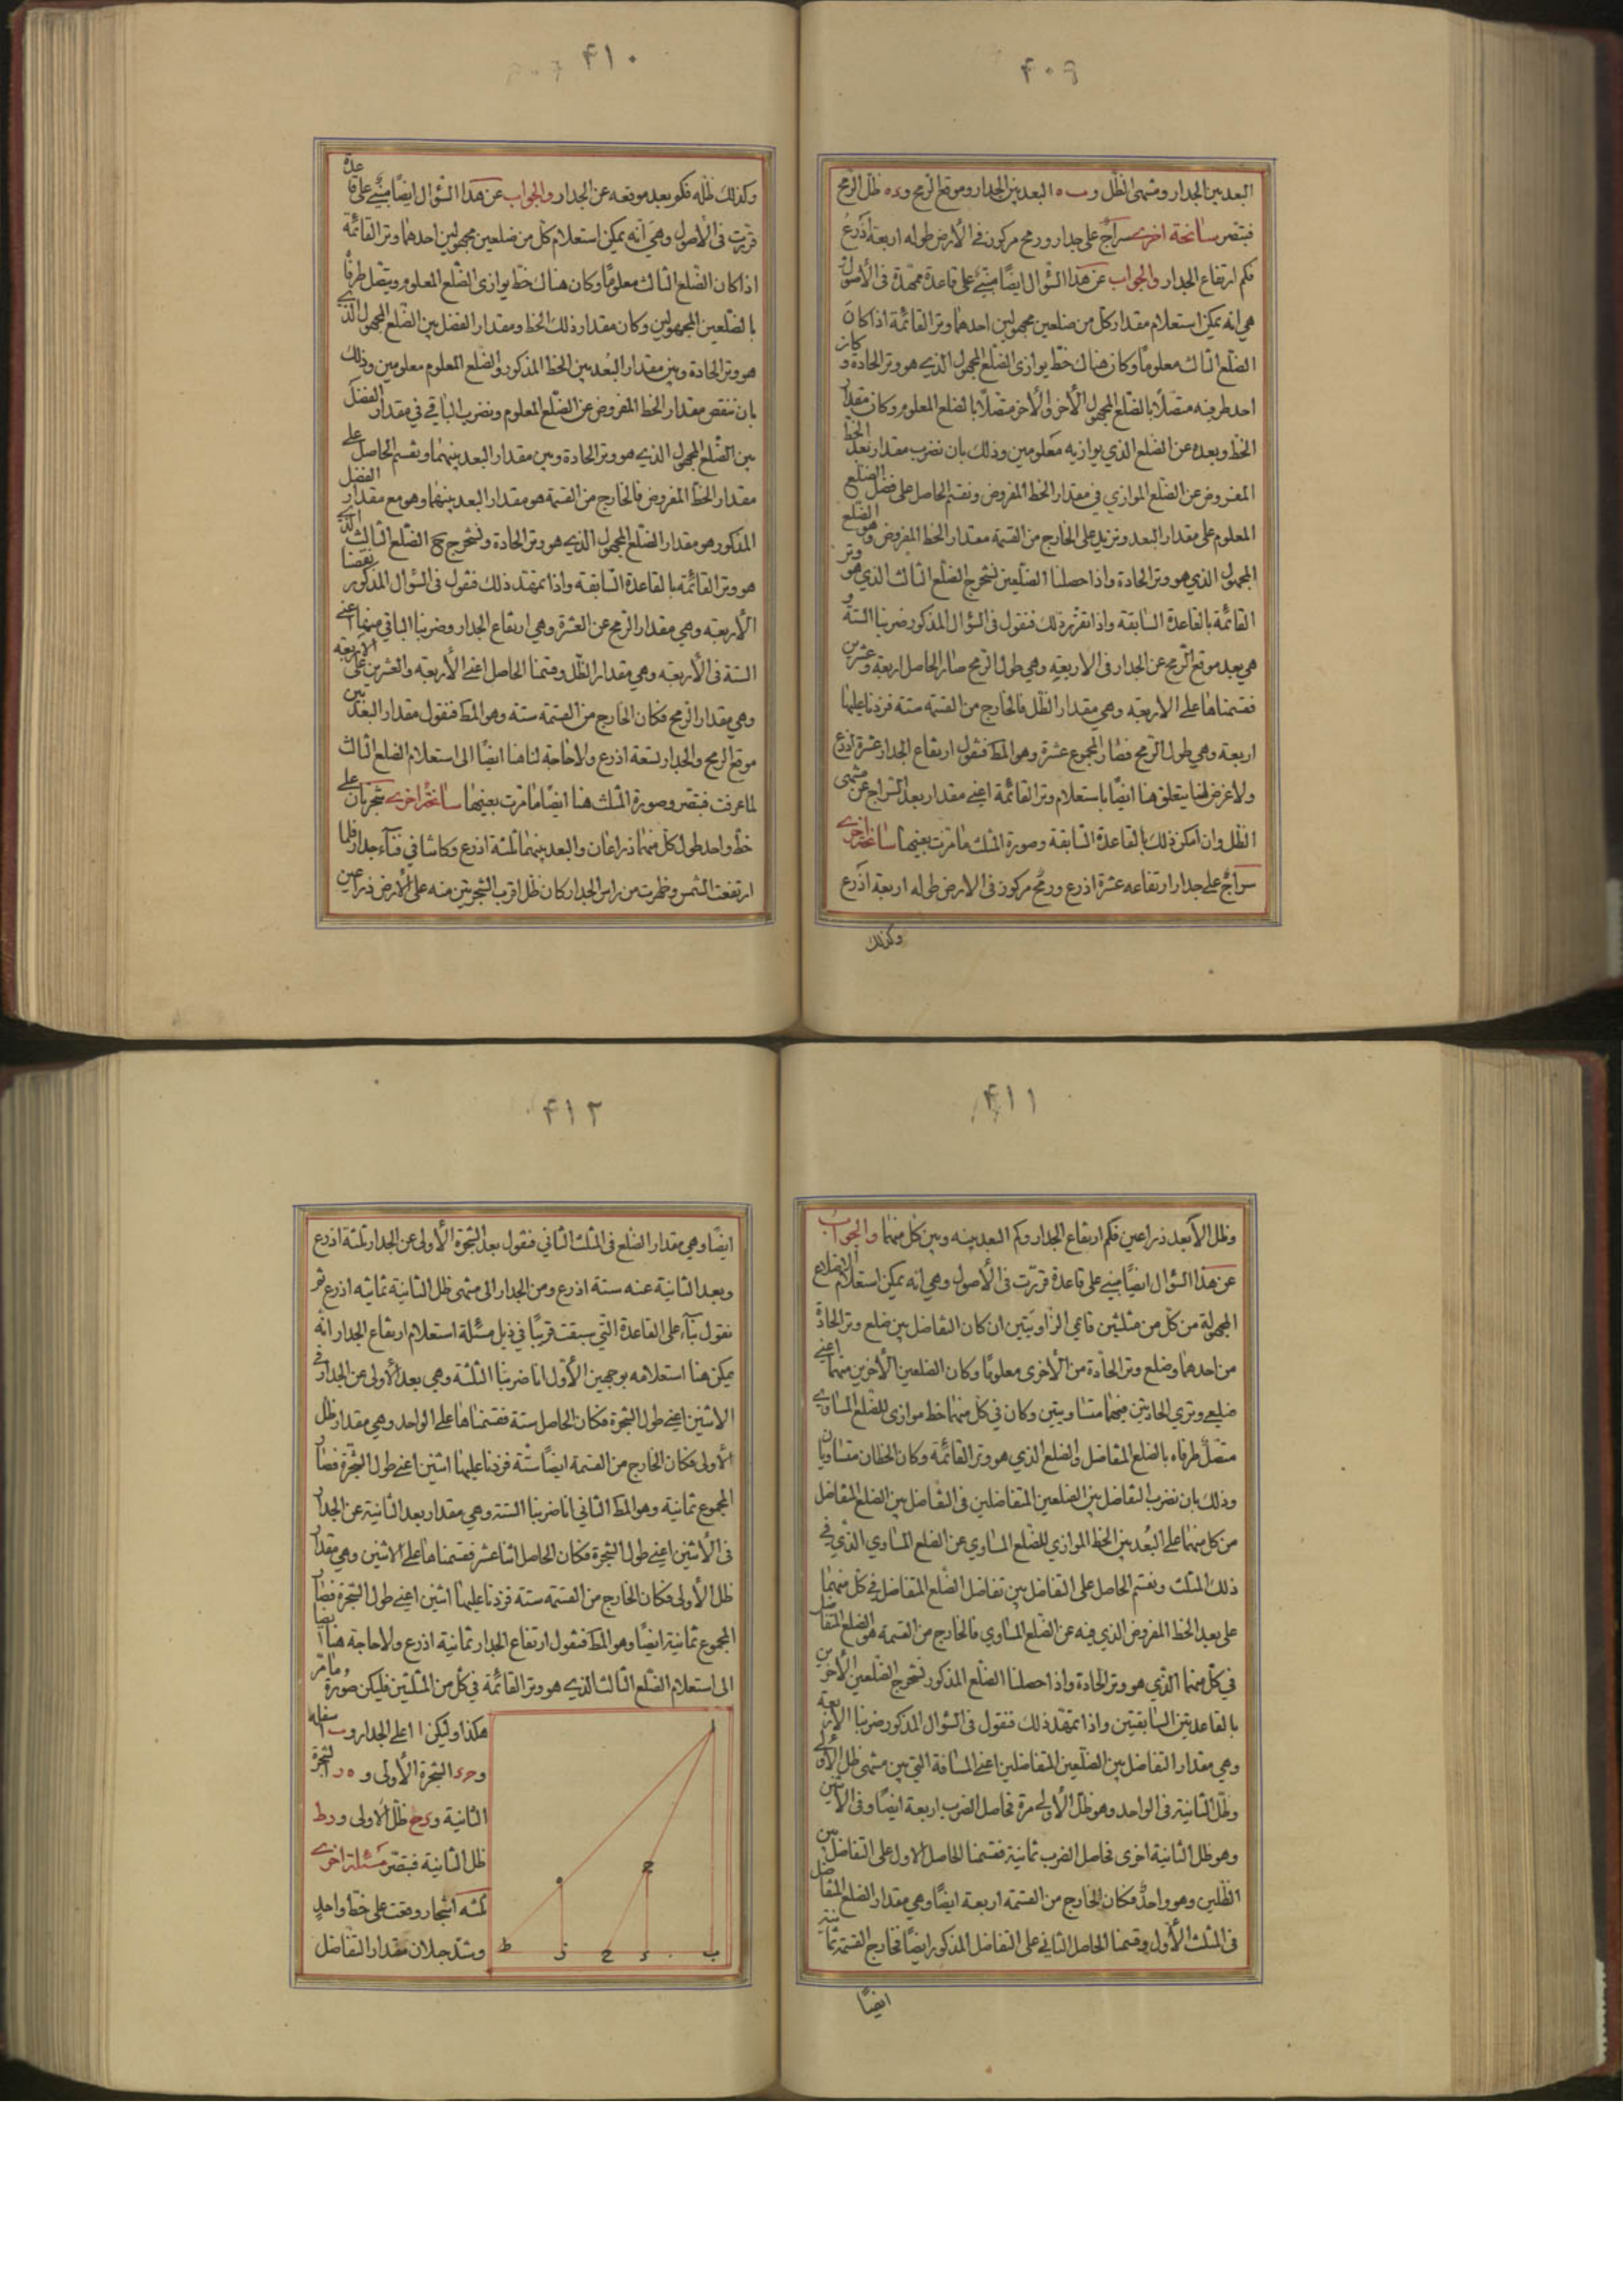 ۴۰۹
البعد بين الجدار ومنتهى الظل و ب ه البعد بين الجدار وموقع الرمح و ده ظل الرمح
فتبصر سانحة اخرى سراج على جدار ورمح مركوز فى الأرض طوله اربعة اذرع
فكم ارتفاع الجدار والجواب عن هذا السؤال ايضًا مبنىّ على قاعدة ممهدة فى الأصول
هى انه يمكن استعلام مقدار كل من ضلعين مجهولين احدهما وتر القائمة اذا كان
الضلع الثالث معلومًا وكان هناك خط يوازى الضلع المجهول الذى هو وتر الحادة و كان
احد طرفيه متصلًا بالضلع المجهول الأخر والأخر متصلًا بالضلع المعلوم وكان مقدار
الخط وبعده عن الضلع الذي يوازيه معلومين وذلك بان نضرب مقدار بعد الخط
المفروض عن الضلع الموازي في مقدار الخط المفروض ونقسم الحاصل على فضل الضلع
المعلوم على مقدار البعد ونزيد على الخارج من القسمة مقدار الخط المفروض وهو الضلع
المجهول الذي هو وتر الحادة واذا حصلنا الضلعين نستخرج الضلع الثالث الذي هو وتر
القائمة بالقاعدة السابقة واذا تقرر ذلك فنقول فى السؤال المذكور ضربنا الستة و
هي بعد موقع الرمح عن الجدار فى الاربعة وهي طول الرمح صار الحاصل اربعة وعشرين
فقسمناها على الاربعة وهي مقدار الظل فالخارج من القسمة ستة فزدنا عليها
اربعة وهي طول الرمح فصار المجموع عشرة وهو المط فنقول ارتفاع الجدار عشرة اذرع
ولا غرض لنا يتعلق هنا ايضًا باستعلام وتر القائمة اعنى مقدار بعد السراج عن منتهى
الظل وان امكن ذلك بالقاعدة السابقة وصورة المثلث ما مرت بعينها سانحة اخرى
سراج على جدار ارتفاعه عشرة اذرع ورمح مركوز فى الارض طوله اربعة اذرع
وكذلك
۴۱۰
وكذلك ظله فكم بعد موقعه عن الجدار والجواب عن هذا السؤال ايضًا مبنىّ على قاعدة
قررت فى الأصول وهى انه يمكن استعلام كل من ضلعين مجهولين احدهما وتر القائمة
اذا كان الضلع الثالث معلومًا وكان هناك خط يوازى الضلع المعلوم ويتصل طرفاه
بالضلعين المجهولين وكان مقدار ذلك الخط ومقدار الفضل بين الضلع المجهول الذى
هو وتر الحادة وبين مقدار البعد بين الخط المذكور والضلع المعلوم معلومين وذلك
بان ننقص مقدار الخط المفروض عن الضلع المعلوم ونضرب الباقي في مقدار الفضل
بين الضلع المجهول الذى هو وتر الحادة وبين مقدار البعد بينهما ونقسم الحاصل على
مقدار الخط المفروض فالخارج من القسمة هو مقدار البعد بينهما وهو مع مقدار الفضل
المذكور هو مقدار الضلع المجهول الذى هو وتر الحادة ونستخرج ح الضلع الثالث الذى
هو وتر القائمة بالقاعدة السابقة واذا تمهد ذلك فنقول فى السؤال المذكور نقصنا
الأربعة وهي مقدار الرمح عن العشرة وهي ارتفاع الجدار وضربنا الباقي منها اعنى
الستة فى الأربعة وهي مقدار الظل وقسمنا الحاصل اعنى الأربعة والعشرين على الاربعة
وهي مقدار الرمح فكان الخارج من القسمة ستة وهو المط فنقول مقدار البعد بين
موقع الرمح والجدار ستة اذرع ولا حاجة لنا هنا ايضًا الى استعلام الضلع الثالث
لما عرفت فتبصر وصورة المثلث هنا ايضًا ما مرت بعينها سانحة اخرى شجرتان على
خط واحد طول كل منهما ذراعان والبعد بينهما ثلثة اذرع وكانتا في فناء جدار فلما
ارتفعت الشمس وظهرت من راس الجدار كان ظل اقرب الشجرتين منه على الأرض ذراعين
۴۱۱
وظل الأبعد ذراعين فكم ارتفاع الجدار وكم البعد بينه وبين كل منهما والجواب
عن هذا السؤال ايضًا مبنىّ على قاعدة قررت فى الأصول وهى انه يمكن استعلام الاضلاع
المجهولة من كل من مثلثين قائمي الزاويتين ان كان التفاضل بين ضلع وتر الحادة
من احدهما وضلع وتر الحادة من الأخرى معلومًا وكان الضلعين الأخرين منهما اعنى
ضلعى وترى الحادتين منهما متساويتين وكان في كل منهما خط موازى للضلع المساوى
متصل طرفاه بالضلع المتفاضل والضلع الذي هو وتر القائمة وكان الخطان متساويان
وذلك بان نضرب التفاضل بين الضلعين المتفاضلين فى التفاضل بين الضلع المتفاضل
من كل منهما على البُعد بين الخط الموازي للضلع المساوي عن الضلع المساوي الذي في
ذلك المثلث ونقسم الحاصل على التفاضل بين تفاضل الضلع المتفاضل في كل منهما
على بعد الخط المفروض الذي فيه عن الضلع المساوي فالخارج من القسمة هو الضلع المتفاضل
في كل منهما الذي هو وتر الحادة واذا حصلنا الضلع المذكور نستخرج الضلعين الأخرين
بالقاعدتين السابقتين واذا تمهد ذلك فنقول فى السؤال المذكور ضربنا الأربعة
وهي مقدار التفاضل بين الضلعين المتفاضلين اعنى المسافة التي بين منتهى ظل الأولى
وظل الثانية فى الواحد وهو ظل الأولى مرة فحاصل الضرب اربعة ايضًا وفى الأثنين
وهو ظل الثانية اخرى فحاصل الضرب ثمانية فقسمنا الحاصل الاول على التفاضل بين
الظلين وهو واحد فكان الخارج من القسمة اربعة ايضًا وهي مقدار الضلع المتفاضل
فى المثلث الأول وقسمنا الحاصل الثاني على التفاضل المذكور ايضًا فخارج القسمة ثمانية
ايضًا
۴۱۲
ايضًا وهي مقدار الضلع فى المثلث الثاني فنقول بعد الشجرة الأولى عن الجدار ثلثة اذرع
وبعد الثانية عنه ستة اذرع ومن الجدار الى منتهى ظل الثانية ثمانية اذرع ثم
نقول بناء على القاعدة التي سبقت قريبًا في ذيل مسئلة استعلام ارتفاع الجدار انه
يمكن هنا استعلامه بوجهين الأول انا ضربنا الثلثة وهي بعد الأولى عن الجدار في
الاثنين اعنى طول الشجرة فكان الحاصل ستة فقسمناها على الواحد وهي مقدار ظل
الأولى فكان الخارج من القسمة ايضًا ستة فزدنا عليها اثنين اعنى طول الشجرة فصار
المجموع ثمانية وهو المط الثاني انا ضربنا الستة وهي مقدار بعد الثانية عن الجدار
فى الأثنين اعنى طول الشجرة فكان الحاصل اثنا عشر فقسمناها على الاثنين وهي مقدار
ظل الأولى فكان الخارج من القسمة ستة فزدنا عليها اثنين اعنى طول الشجرة فصار
المجموع ثمانية ايضًا وهو المط فنقول ارتفاع الجدار ثمانية اذرع ولا حاجة هنا ايضا
الى استعلام الضلع الثالث الذى هو وتر القائمة في كل من المثلثين فليكن صورة ما مر
هكذا وليكن ا اعلى الجدار و ب اسفله
و ح د الشجرة الأولى و ه ر الشجرة
الثانية و د ح ظل الأولى و رط
ظل الثانية فتبصر مسئلة اخرى
ثلثة اشجار وقعت على خط واحد
وشد حبلان مقدار التفاضل
ا
ه
ح
ب
د
ح
ز
ط